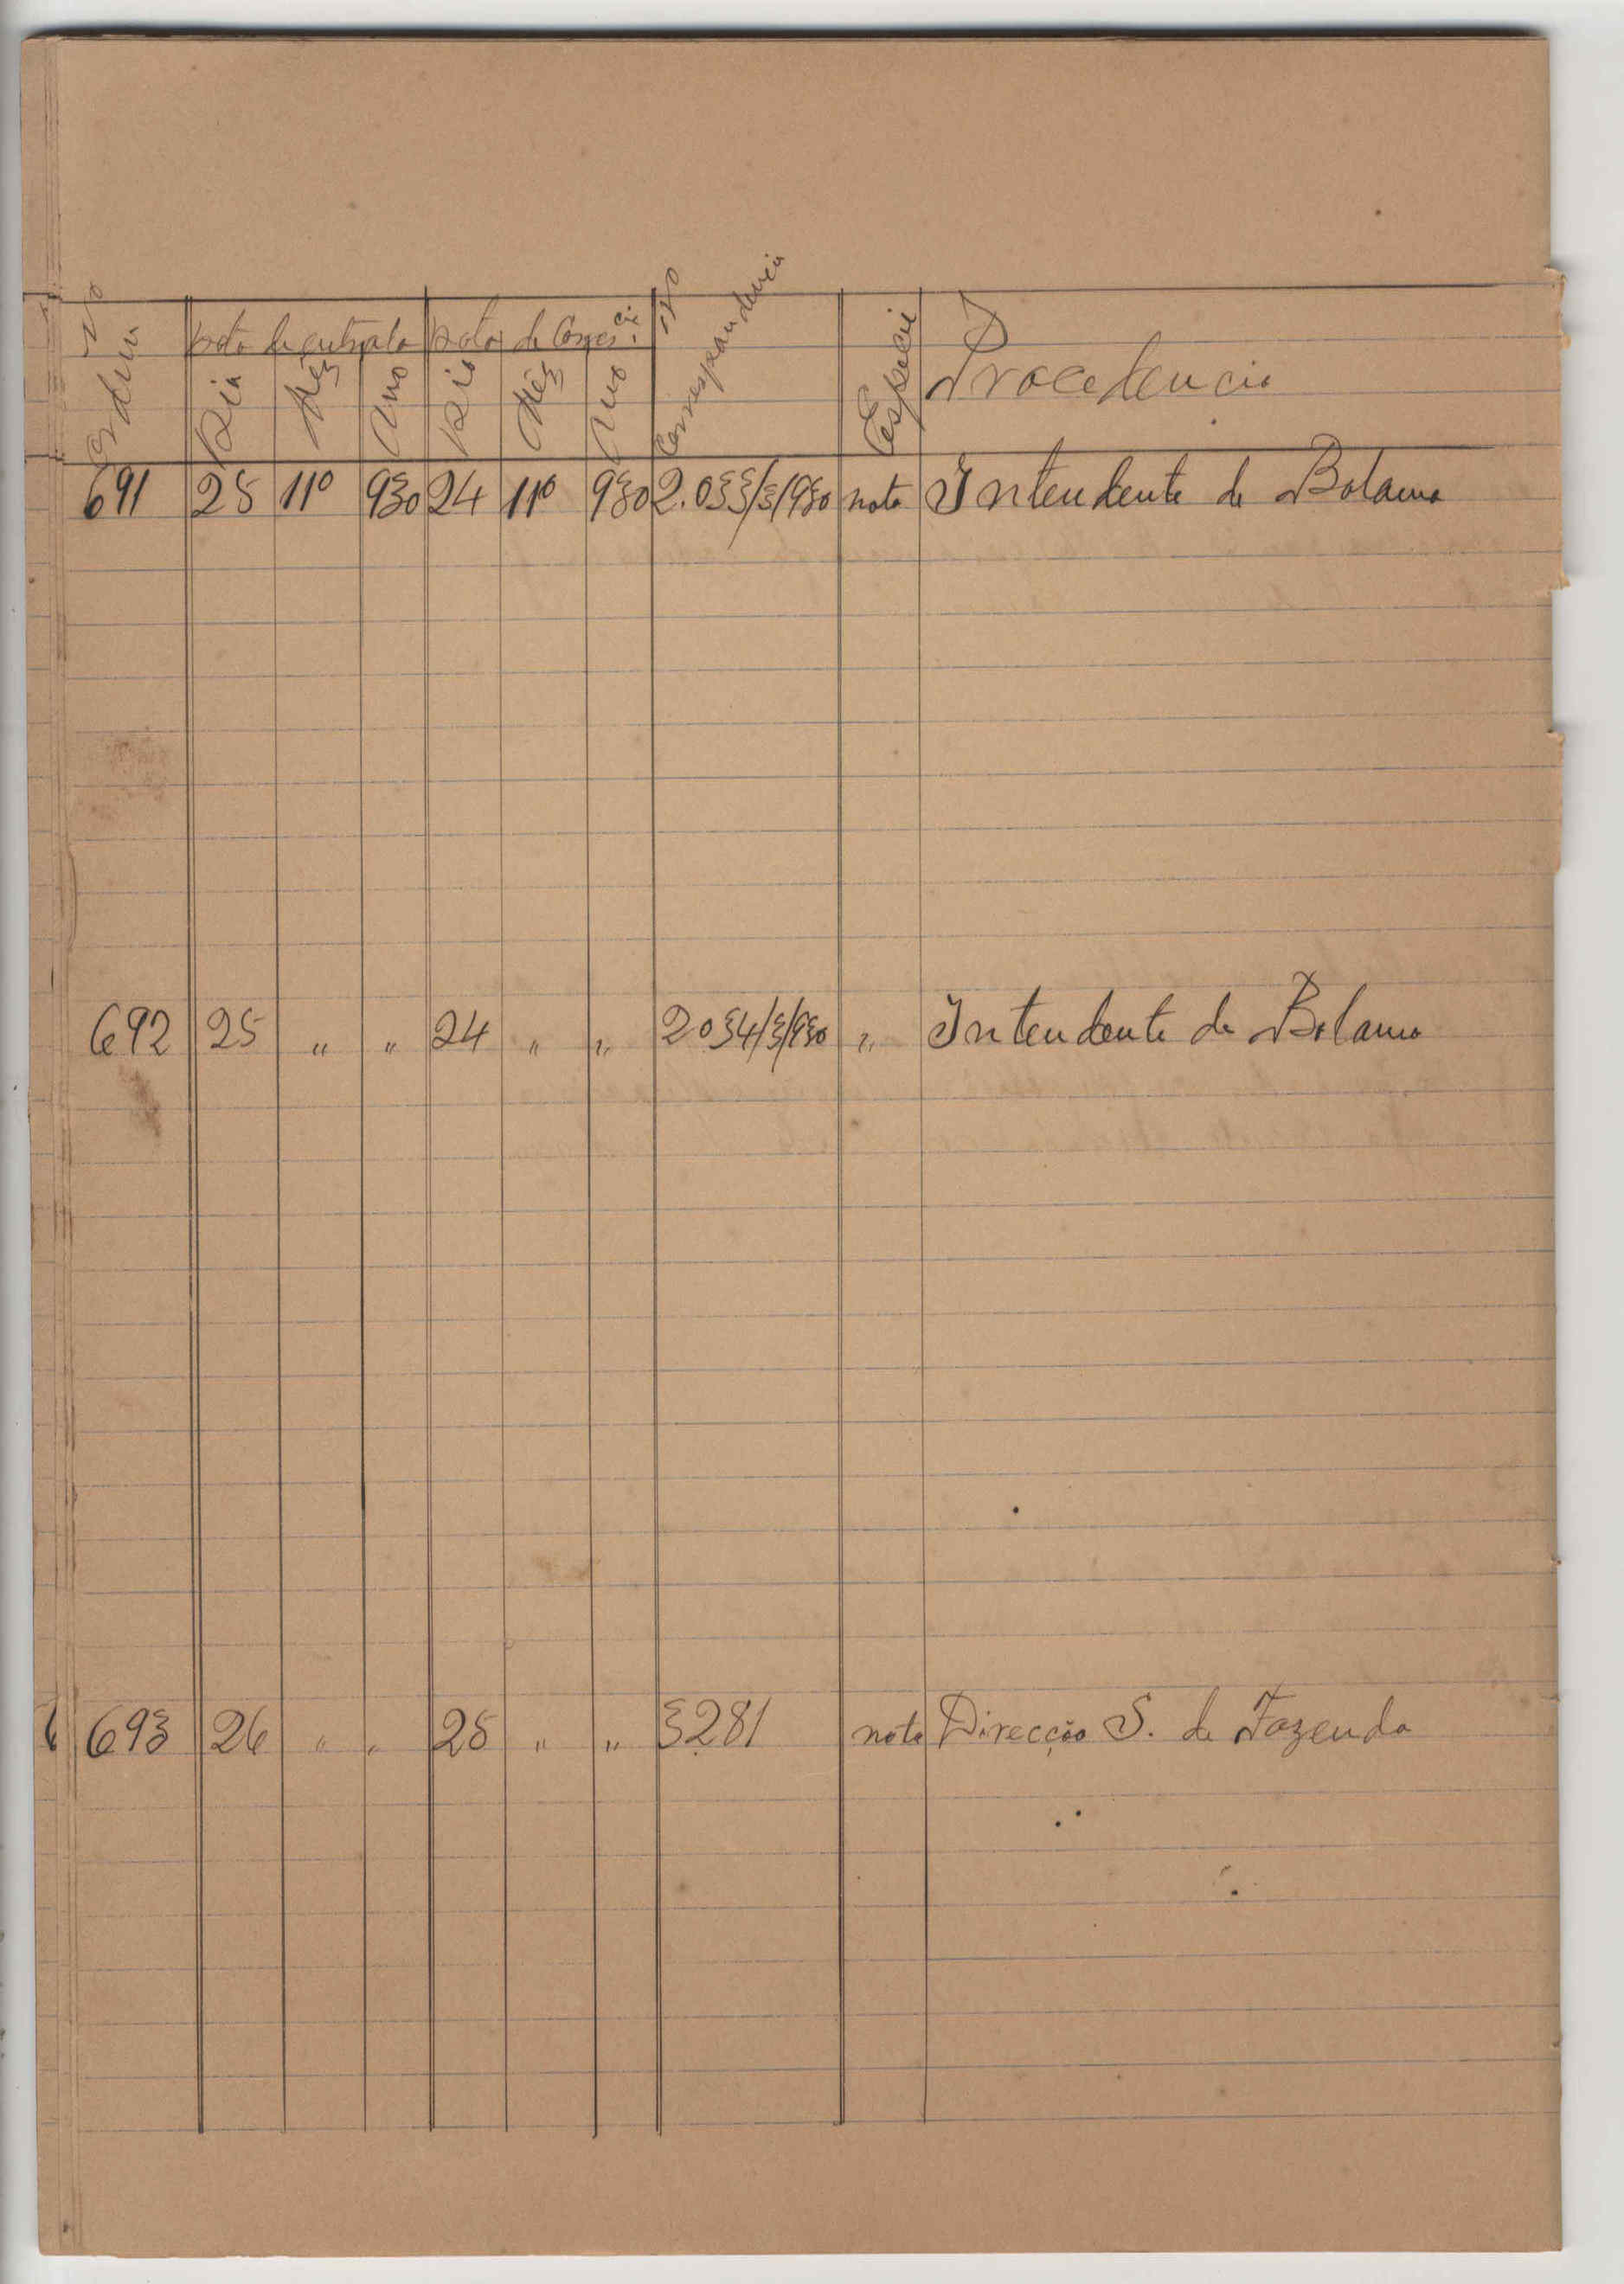 Nº Ordem
Data de entrada Data de Corres.cia Nº Correspondencia Especie Procedencia
Dia Mêz Ano Dia Mêz Ano
691 25 11º 930 24 11º 930 2.033/3/930 nota Intendente de Bolama
692 25 " " 24 " " 2034/3/930 " Intendente de Bolama
693 26 " " 25 " " 3281 nota Direcção S. de Fazenda